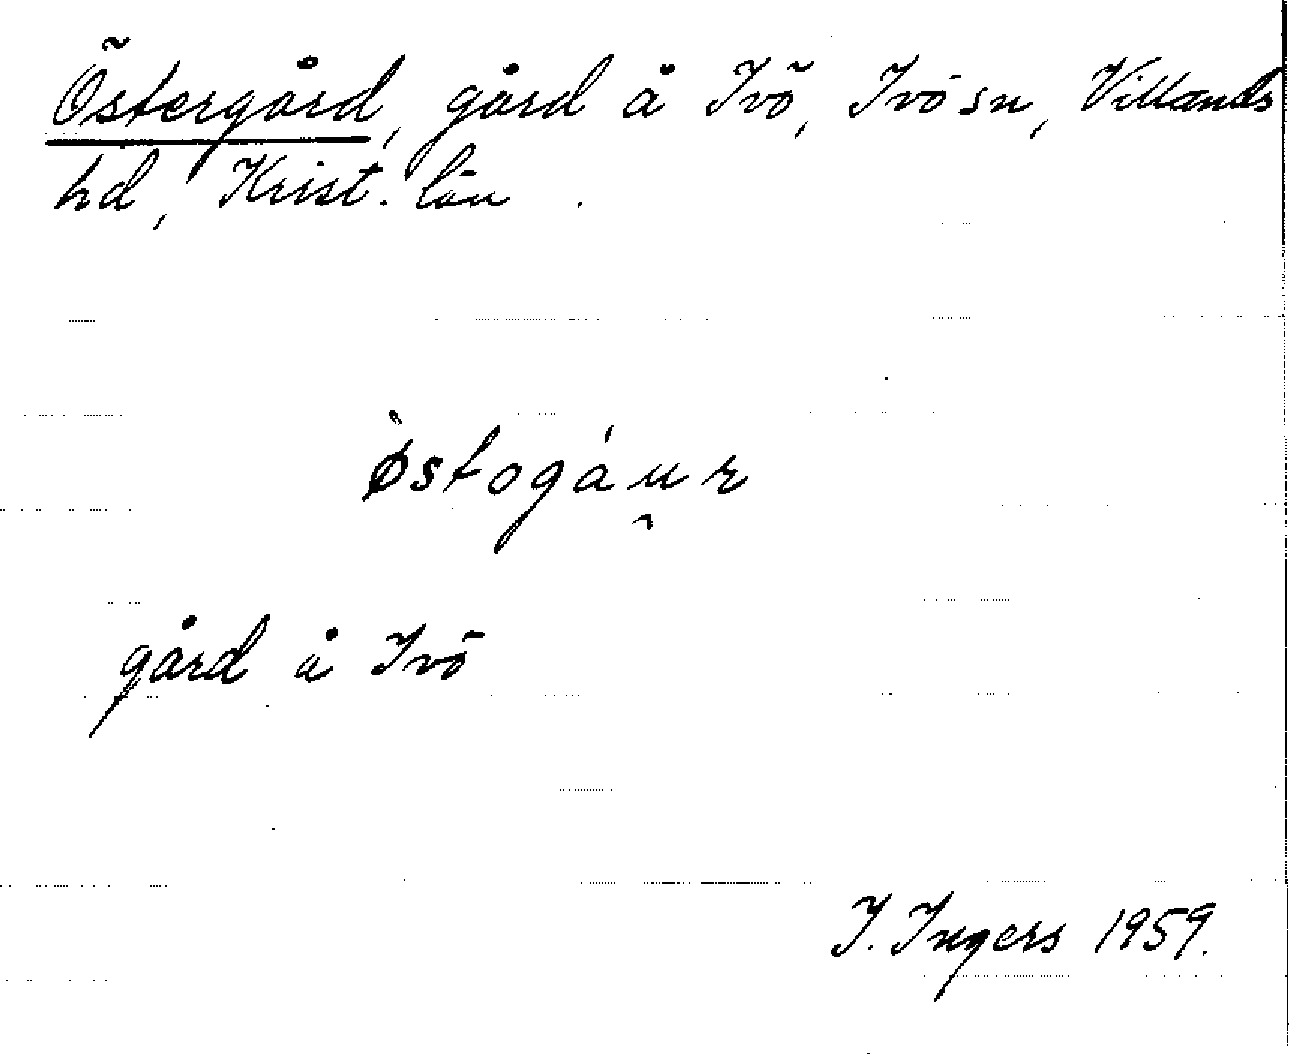 Östergård, gård å Ivö, Ivö sn, Villands
hd, Krist. län.
ø̀stogáu̯r
gård å Ivö
I. Ingers 1959.